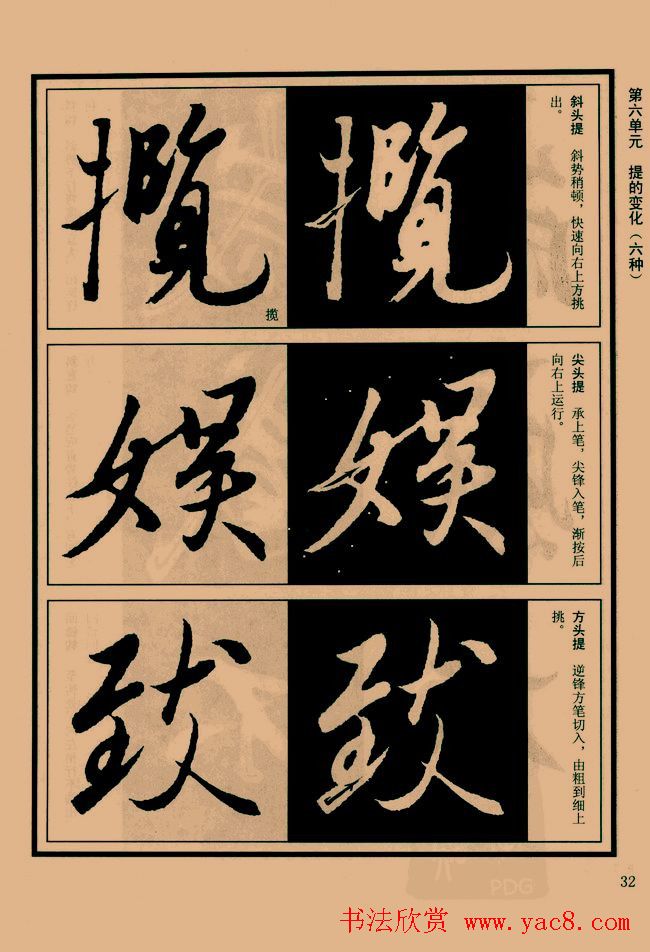 第六单元　提的变化（六种）
斜头提　斜势稍顿，快速向右上方挑
出。
攬
攬
揽
尖头提　承上笔，尖锋入笔，渐按后
向右上运行。
娱
娱
方头提　逆锋方笔切入，由粗到细上
挑。
致
致
32
PDG
书法欣赏 www.yac8.com